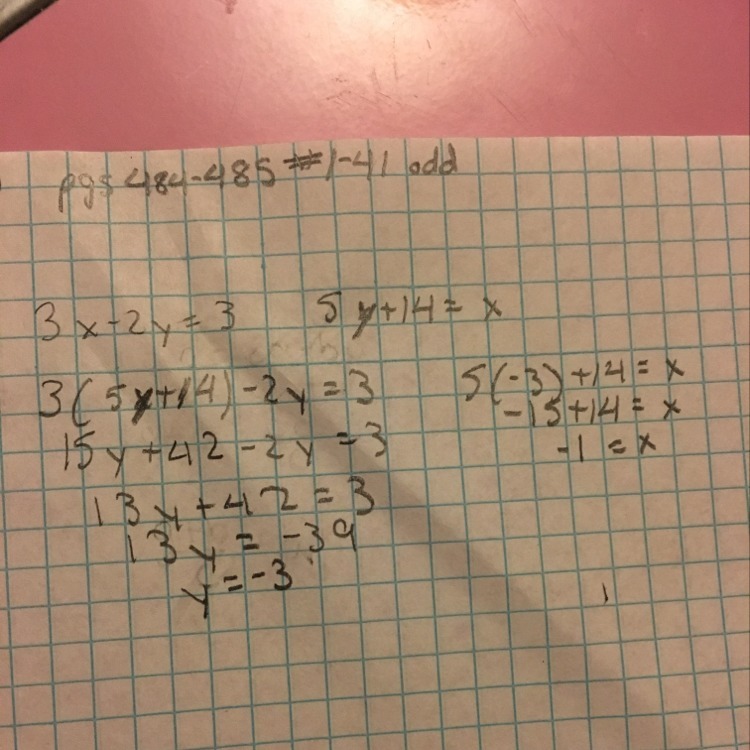 pgs 484-485 #1-41 odd
3x-2y=3
5y+14=x
3(5y+14)-2y=3
15y+42-2y=3
13y+42=3
13y=-39
y=-3
5(-3)+14=x
-15+14=x
-1=x